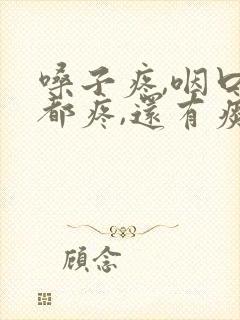 嗓子疼,咽口
都疼,還有痰
顾念